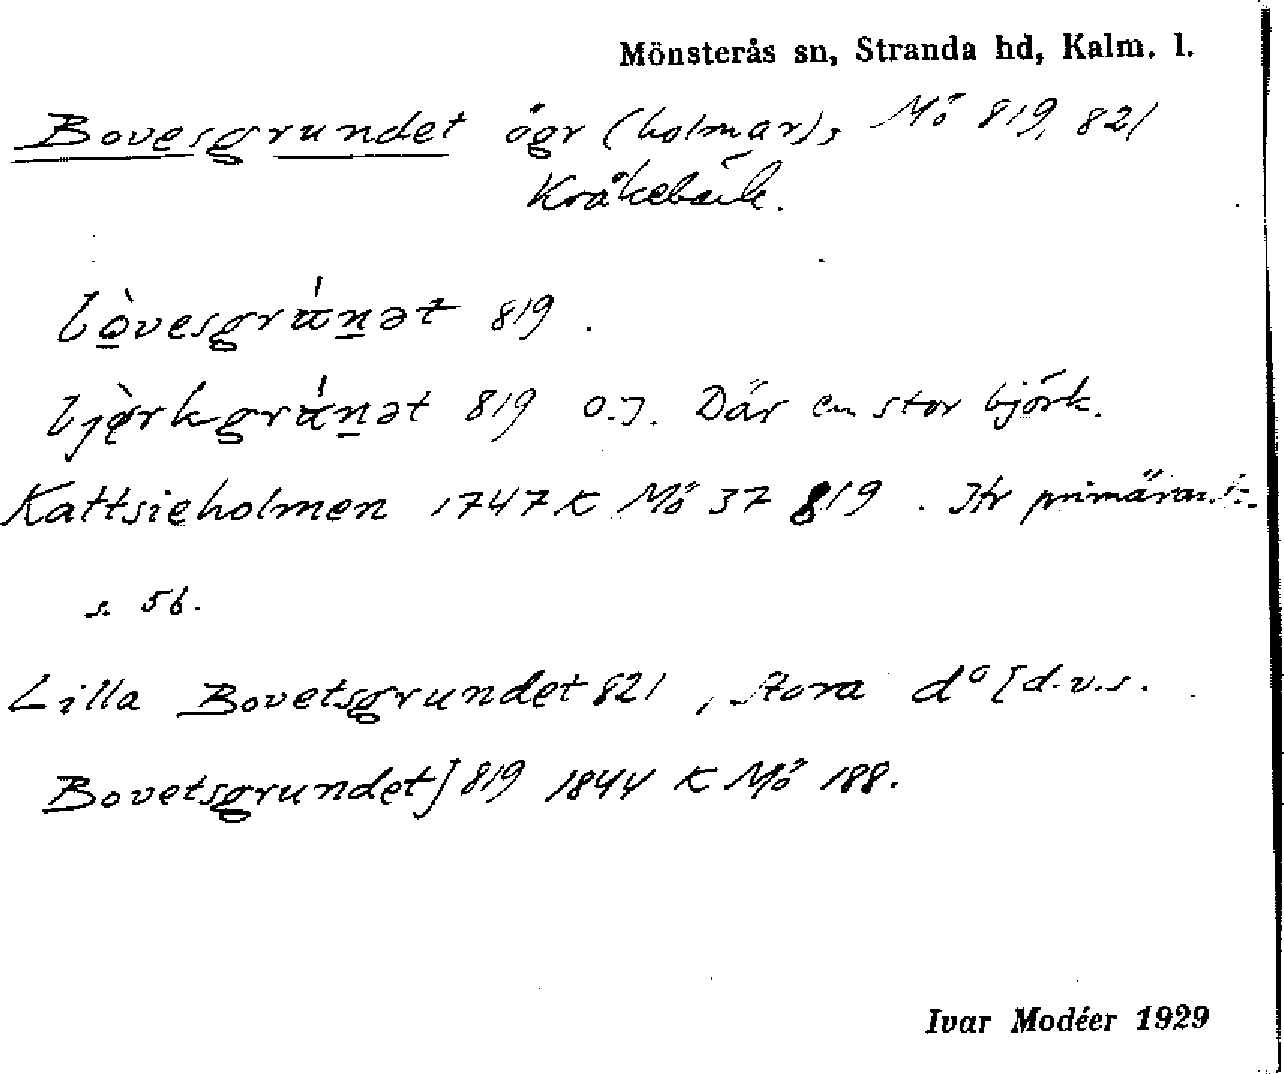 Mönsterås sn, Stranda hd, Kalm. l.
Bovesgrundet ögr (holmar), Mö 819, 821
Kråkebäck.
bòvesgrúnət 819.
bjèrkgrúnət 819 o.J. Där en stor björk.
Kattsieholmen 1747 K Mö 37 819. Jfr
s. 56.
Lilla Bovetsgrundet 821, Stora do [d.v.s.
Bovetsgrundet] 819 1844 K Mö 188.
Ivar Modéer 1929